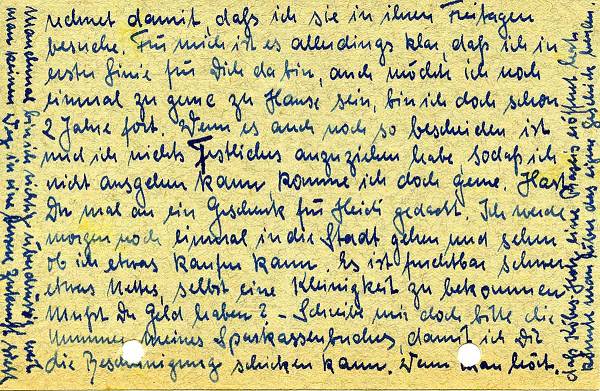 rechnet damit daß ich sie in ihren Freitagen
besuche. Für mich ist es allerdings klar, daß ich in
erster Linie für Dich da bin, auch möchte ich noch
einmal zu gerne zu Hause sein, bin ich doch schon
2 Jahre fort. Wenn es auch noch so bescheiden ist
und ich nichts Festliches anzuziehen habe, sodaß ich
nicht ausgehen kann komme ich doch gerne. Hast
Du mal an ein Geschenk für Heidi gedacht. Ich werde
morgen noch einmal in die Stadt gehen und sehen
ob ich etwas kaufen kann. Es ist furchtbar schwer
etwas Nettes, selbst eine Kleinigkeit zu bekommen
Mußt Du Geld haben? - Schreibe mir doch bitte die
Nummer meines Sparkassenbuches, damit ich Dir
die Bescheinigung schicken kann. Wenn man hört,
daß eine Praxis eröffnet hat,
könnte man das eigene Geschick
Manchmal bin ich richtig weil
man keinen Weg in eine Zukunft sieht